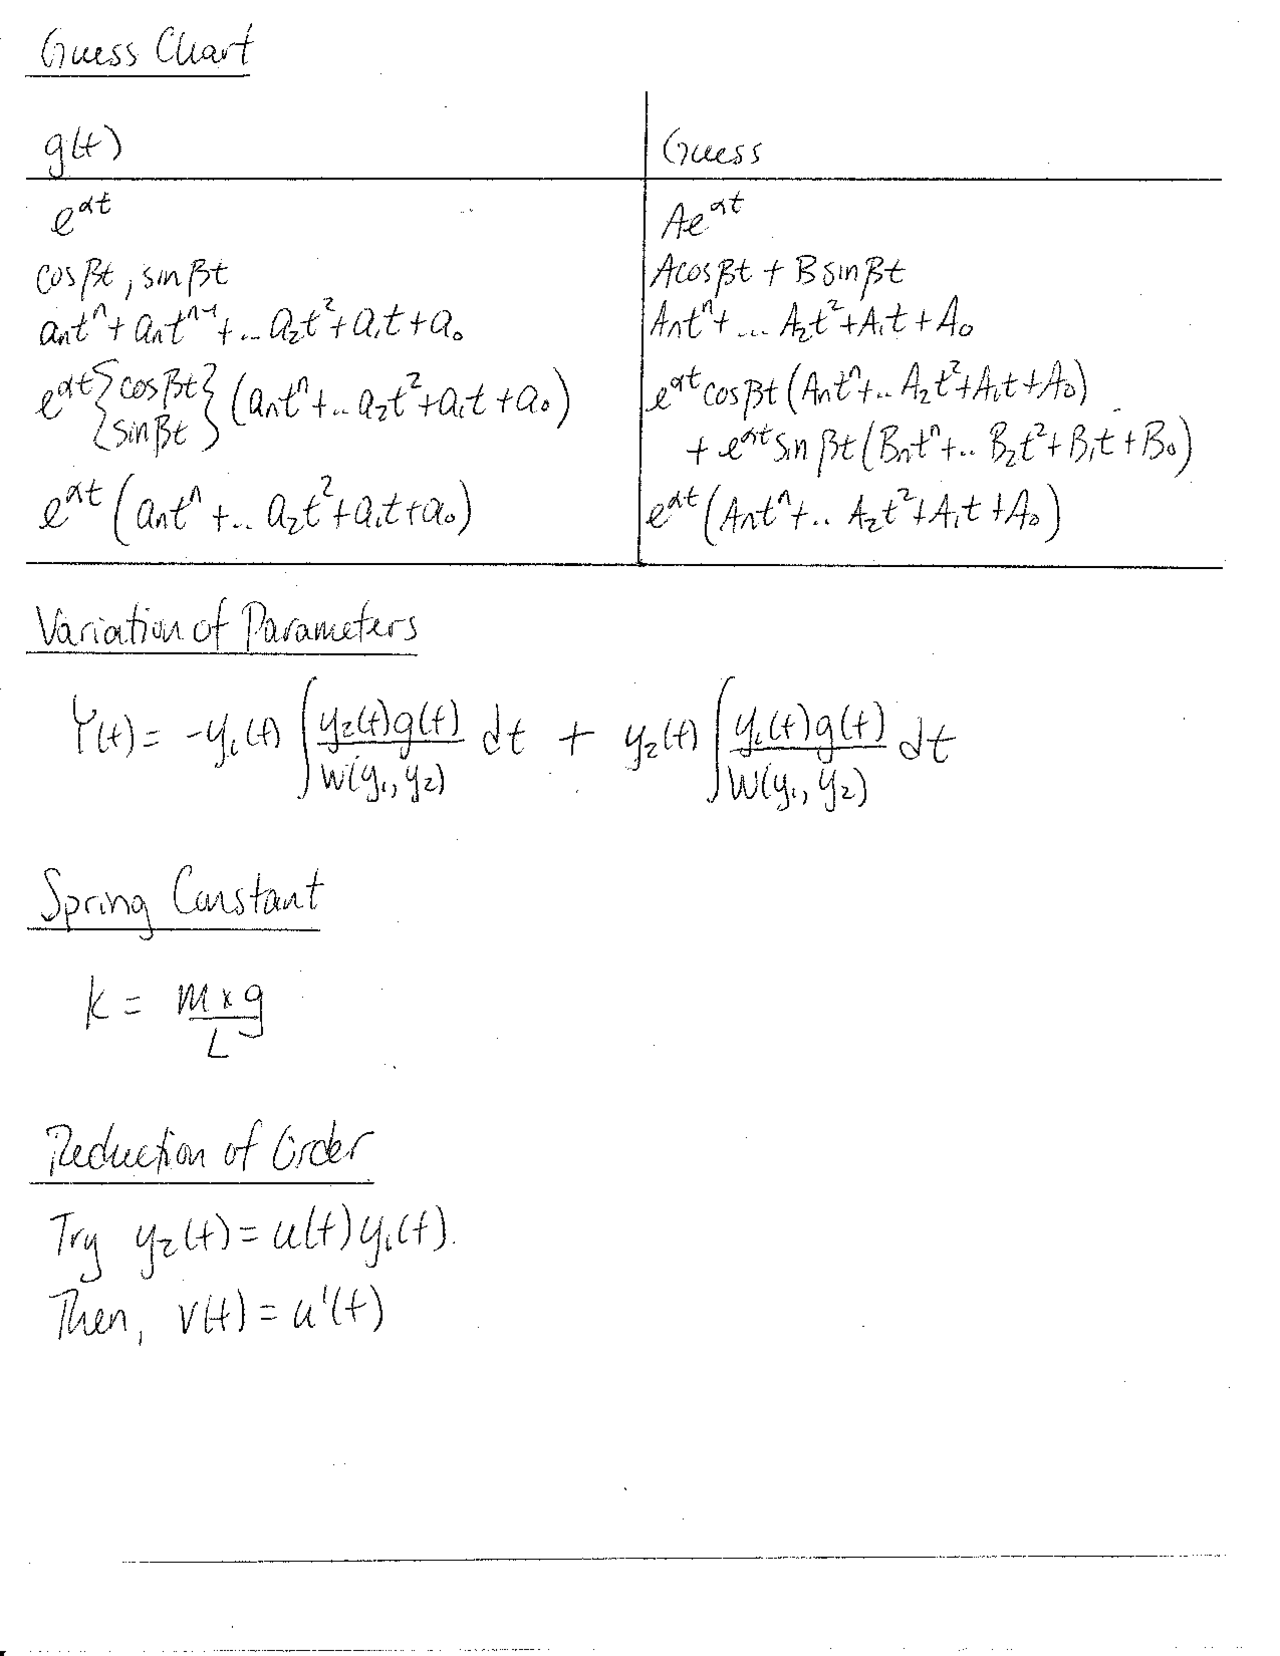 Guess Chart
g(t) Guess
e^αt Ae^αt
cosβt, sinβt Acosβt + Bsinβt
aₙtⁿ + aₙtⁿ⁻¹ + ... a₂t² + a₁t + a₀ Aₙtⁿ + ... A₂t² + A₁t + A₀
e^αt {cosβt sinβt} (aₙtⁿ + .. a₂t² + a₁t + a₀) e^αt cosβt (Aₙtⁿ + .. A₂t² + A₁t + A₀)
+ e^αt sin βt (Bₙtⁿ + .. B₂t² + B₁t + B₀)
e^αt (aₙtⁿ + .. a₂t² + a₁t + a₀) e^αt (Aₙtⁿ + .. A₂t² + A₁t + A₀)
Variation of Parameters
Y(t) = -y₁(t) ∫ y₂(t)g(t) / W(y₁, y₂) dt + y₂(t) ∫ y₁(t)g(t) / W(y₁, y₂) dt
Spring Constant
k = m × g / L
Reduction of Order
Try y₂(t) = u(t)y₁(t).
Then, v(t) = u'(t)